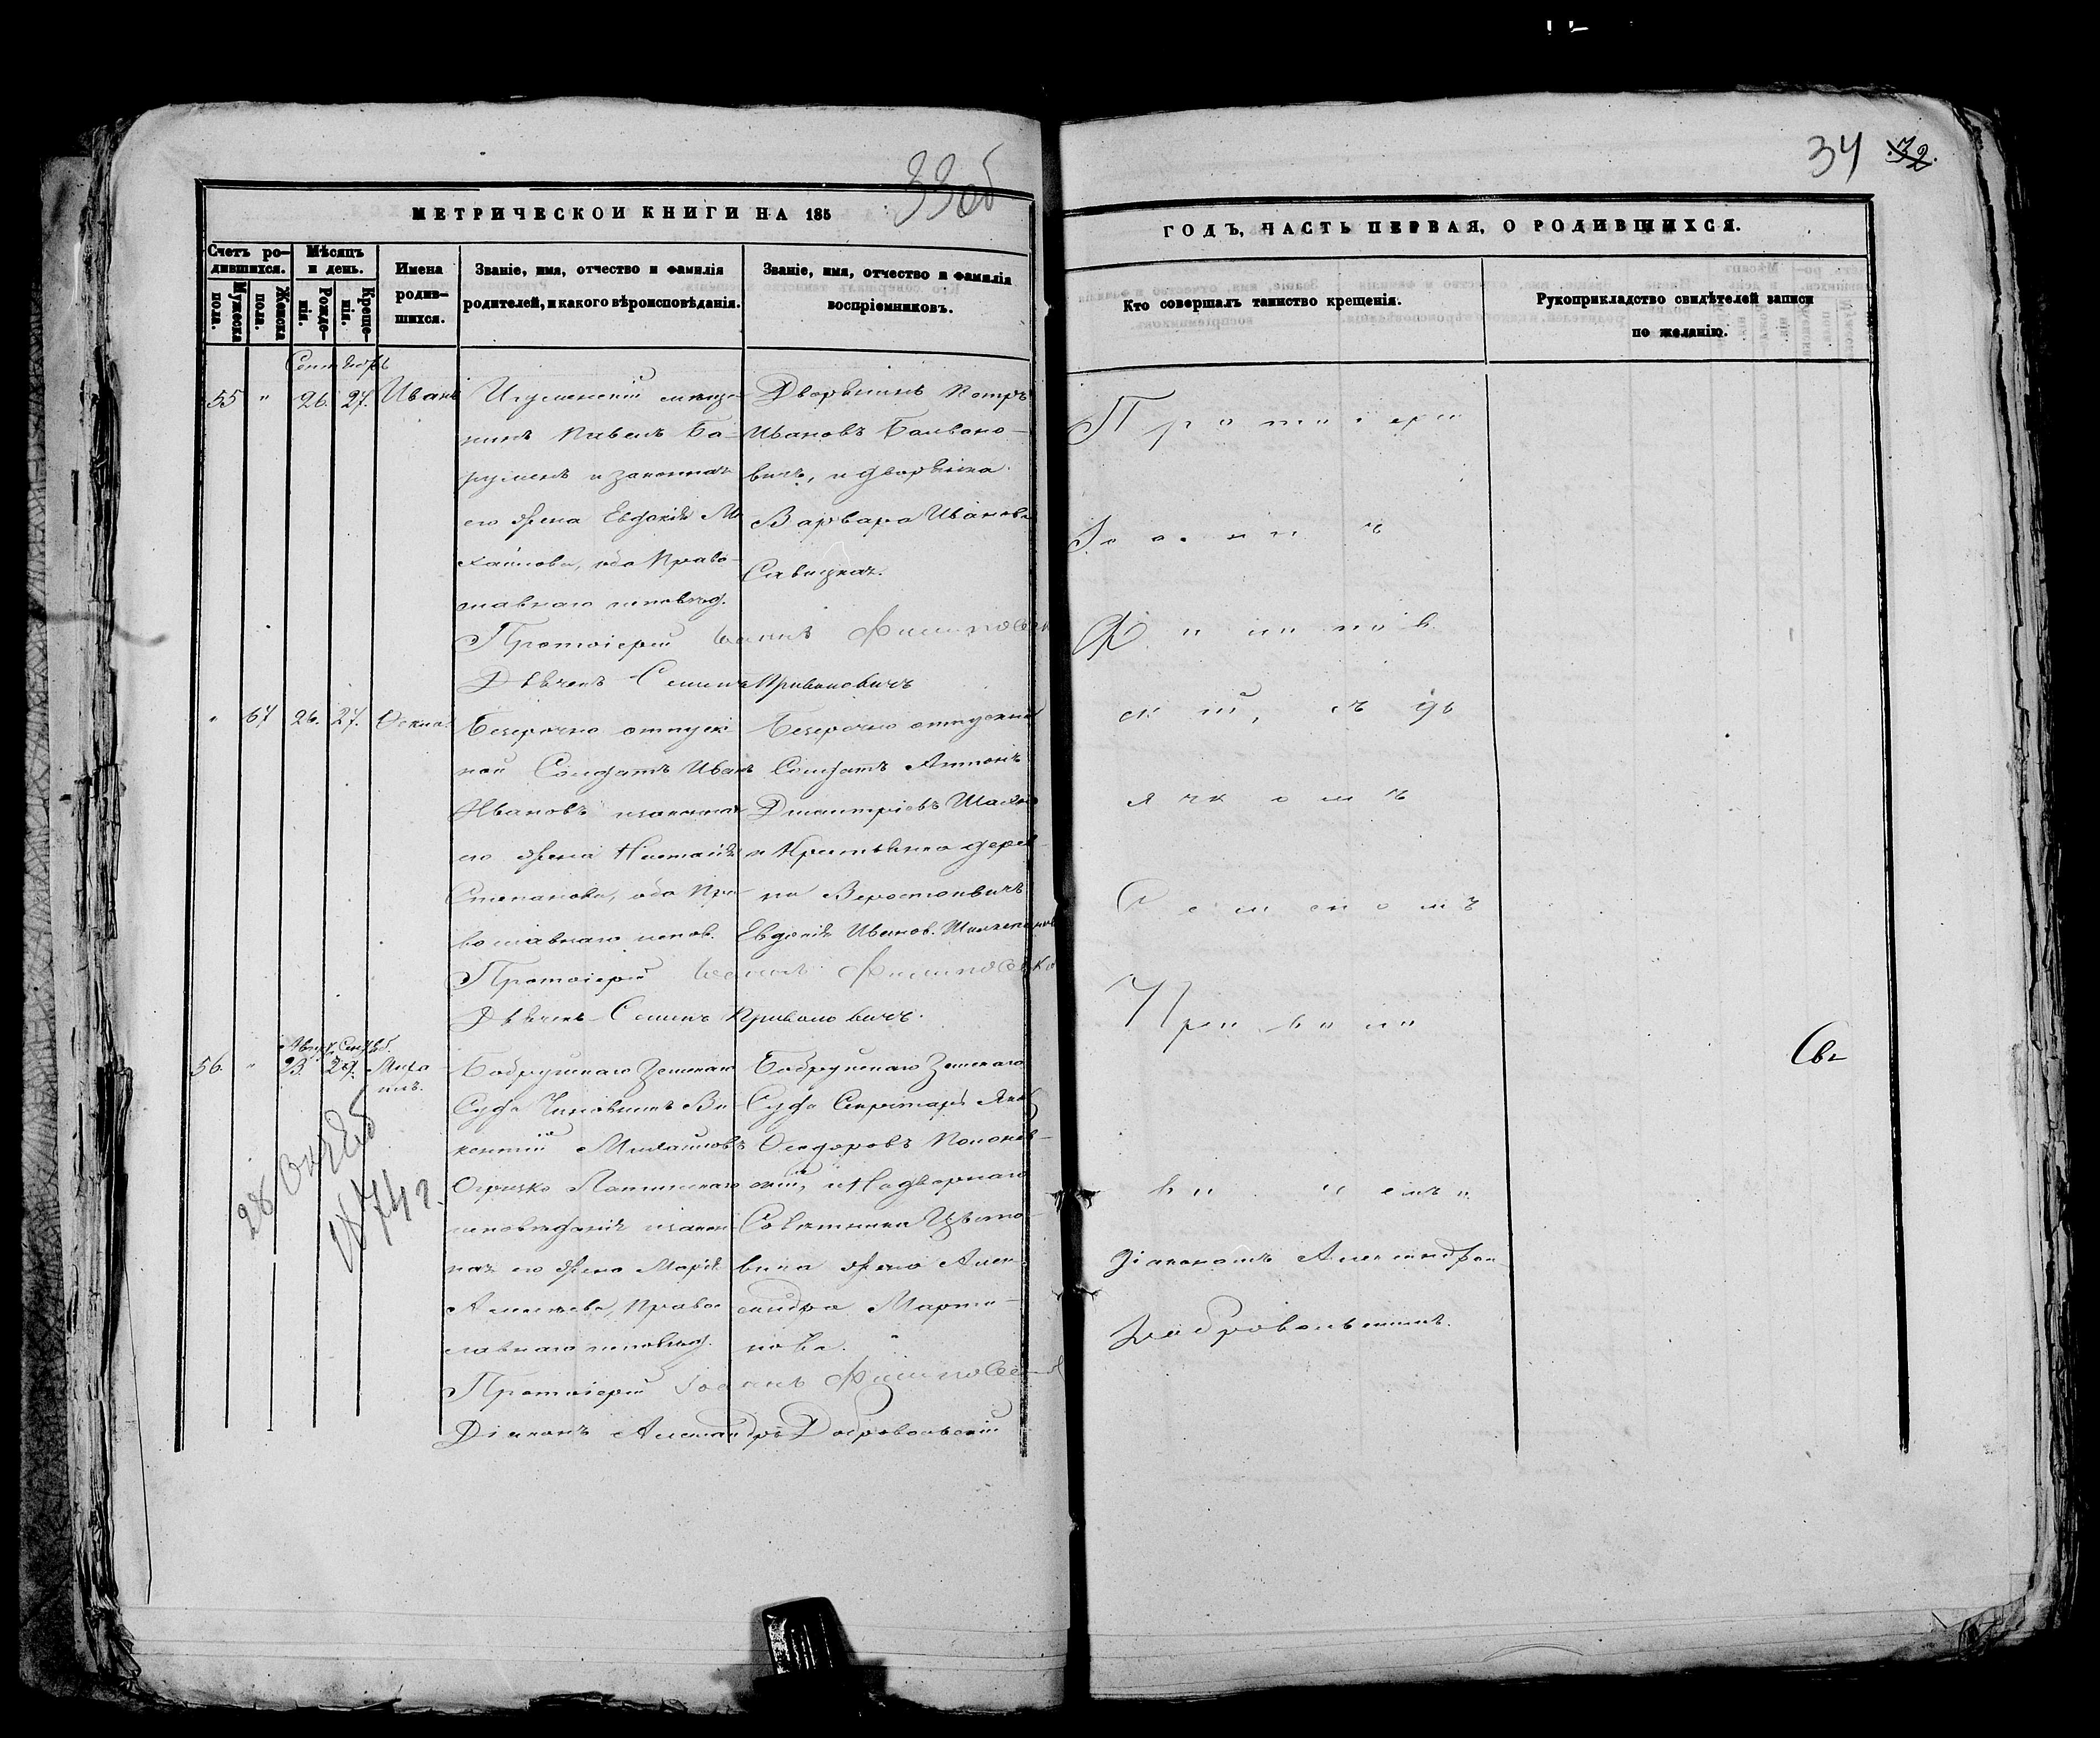 33об
МЕТРИЧЕСКОЙ КНИГИ НА 185
Счетъ ро-
дившихся.
Мужеска
пола.
Женска
пола.
Мѣсяцъ
и день.
Рожде-
нія.
Креще-
нія.
Имена
родив-
шихся.
Званіе, имя, отчество и фамилія
родителей, и какого вѣроисповѣданія.
Званіе, имя, отчество и фамилія
воспріемниковъ.
Сентябрь
55 " 26. 27. Иванъ
Игуменскій мѣща-
нинъ Павелъ Ба-
и законная
его жена Евдокія Ми
хайлова, оба Право-
славнаго исповѣд.
Дворянинъ Петръ
Ивановъ
вичъ, и дворянка
Варвара Иванова
Савицкая.
Протоіерей Іоаннъ
Дьячекъ Семенъ Приваловичъ
" 67 26. 27.
Безсрочно отпуск
ной Солдатъ Иванъ
Ивановъ и законная
его жена Настасія
Степанова, оба Пра-
вославнаго испов.
Безсрочно отпускной
Солдатъ Антонъ
Дмитріевъ
и Крестьянка дерев
ни
Евдокія Иванов.
Протоіерей Іоаннъ
Дьячекъ Семенъ Приваловичъ.
Август. Сентяб.
56. " 23. 29. Миха
илъ.
28 Октяб
1874 г.
Бобруйскаго Земскаго
Суда Чиновникъ Ви-
кентій Михайловъ
Огризко Латинскаго
исповѣданія и закон-
ная его жена Марія
Алексѣева, Право
славнаго исповѣд.
Бобруйскаго Земскаго
Суда Секретарь Яковъ
Ѳедоровъ
скій, и Надворнаго
Совѣтника
жена Алек-
сандра Марти-
нова.
Протоіерей Іоаннъ
Діаконъ Александръ Добровольскій
34 32.
ГОДЪ, ЧАСТЬ ПЕРВАЯ, О РОДИВШИХСЯ.
Кто совершалъ таинство крещенія.
Рукоприкладство свидѣтелей записи
по желанію.
Протоіерей
Іоаннъ
скій, съ дь
ячкомъ
Семеномъ
Привало
Діакономъ Александром
Добровольскимъ.
Свя